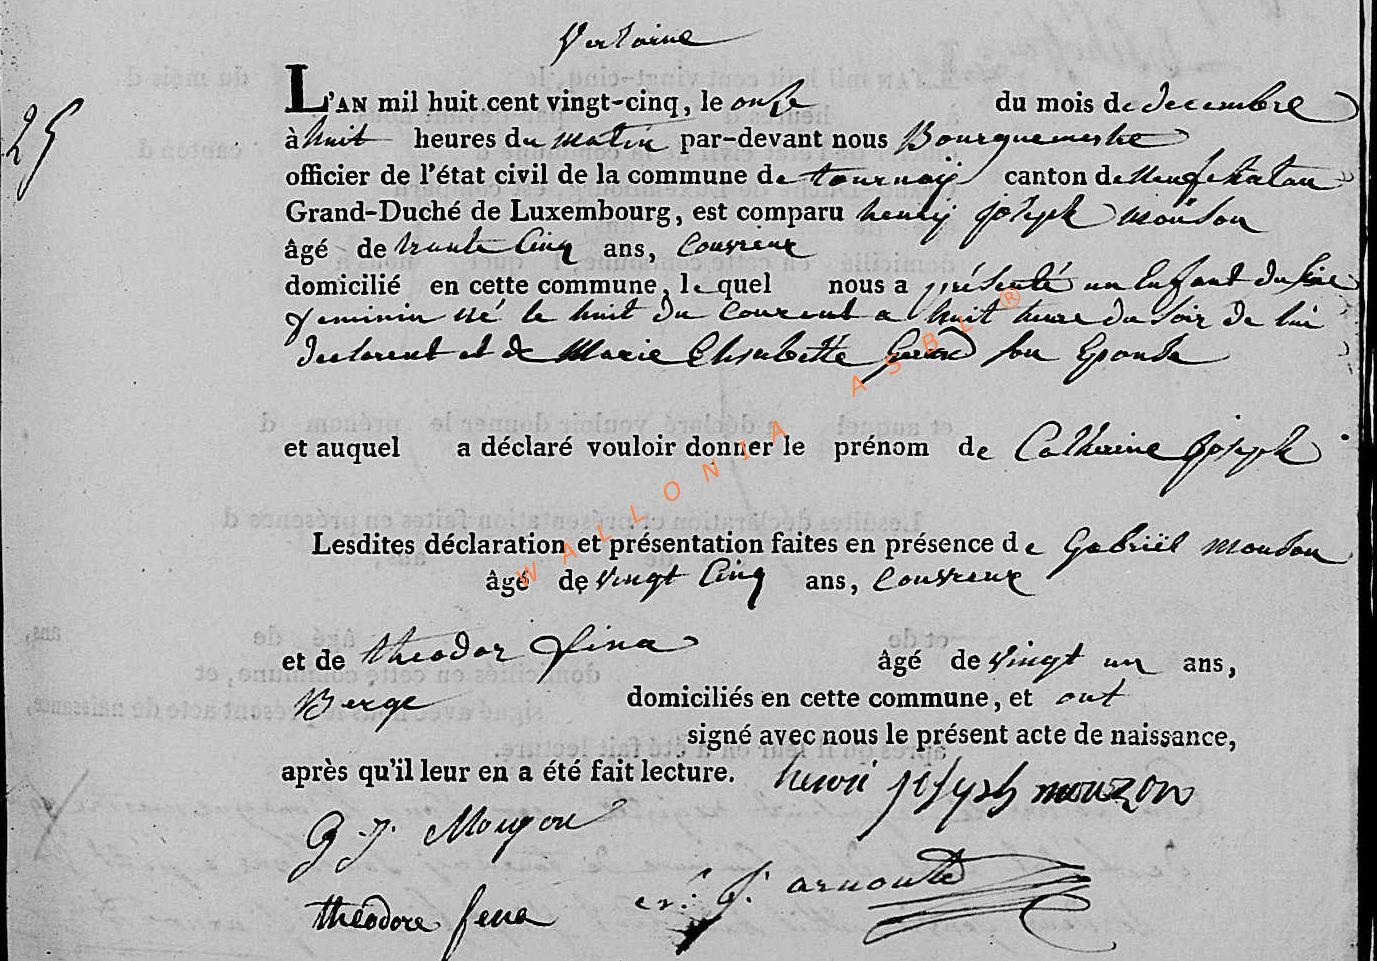 Verlaine
25
L'AN mil huit cent vingt-cinq, le onze du mois de decembre
à huit heures du matin par-devant nous Bourguemestre
officier de l'état civil de la commune de tournaÿ canton de neufchatau
Grand-Duché de Luxembourg, est comparu henrÿ joseph mouson
âgé de trente cinq ans, Couvreur
domicilié en cette commune, le quel nous a présenté un enfant du sexe
feminin né le huit du courent a huit heure du soir de lui
declarent et de Marie Elisabette Gerard son Epouse
et auquel a déclaré vouloir donner le prénom de Catherine joseph
Lesdites déclaration et présentation faites en présence de Gabriël mouson
âgé de vingt cinq ans, Couvreur
et de theodor fina âgé de vingt un ans,
Berge domiciliés en cette commune, et ont
signé avec nous le présent acte de naissance,
après qu'il leur en a été fait lecture. henri joseph mouzon
G J Mouzon
théodore fena J. arnould
WALLONIA ASBL ®